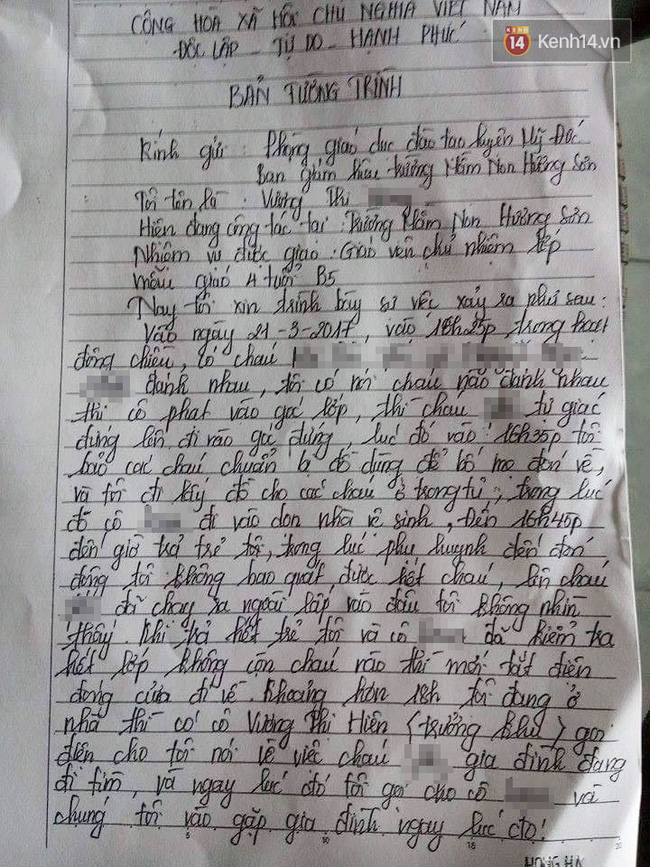 CỘNG HÒA XÃ HỘI CHỦ NGHĨA VIỆT NAM
ĐỘC LẬP TỰ DO - HẠNH PHÚC
KÊNH 14 Kenh14.vn
BẢN TƯỜNG TRÌNH
Kính gửi: Phòng giáo dục đào tạo huyện Mỹ Đức
Ban giám hiệu trường Mầm Non Hương Sơn
Tôi tên là: Vương Thị
Hiện đang công tác tại: Trường Mầm Non Hương Sơn
Nhiệm vụ được giao: Giáo viên chủ nhiệm lớp
mẫu giáo 4 tuổi B5
Nay tôi xin trình bày sự việc xảy ra như sau:
Vào ngày 21-3-2017, vào 16h25p trong hoạt
động chiều, có cháu
đánh nhau, tôi có nói cháu nào đánh nhau
thì cô phạt vào góc lớp, thì cháu tự giác
đứng lên đi vào góc đứng, lúc đó vào 16h35p tôi
bảo các cháu chuẩn bị đồ dùng để bố mẹ đón về,
và tôi đi lấy đồ cho các cháu ở trong tủ, trong lúc
đó cô đi vào dọn nhà vệ sinh, Đến 16h45p
đến giờ trả trẻ tôi, trong lúc phụ huynh đến đón
đông tôi không bao quát được hết cháu, lên cháu
đã chạy ra ngoài lấp vào đâu tôi không nhìn
thấy. Khi trả hết trẻ tôi và cô đã kiểm tra
hết lớp không còn cháu nào thì mới tắt điện
đóng cửa đi về. Khoảng hơn 18h tôi đang ở
nhà thì có cô Vương Thị Hiên (trưởng khu) gọi
điện cho tôi nói về việc cháu gia đình đang
đi tìm, và ngay lúc đó tôi gọi cho cô và
chúng tôi vào gặp gia đình ngay lúc đó!